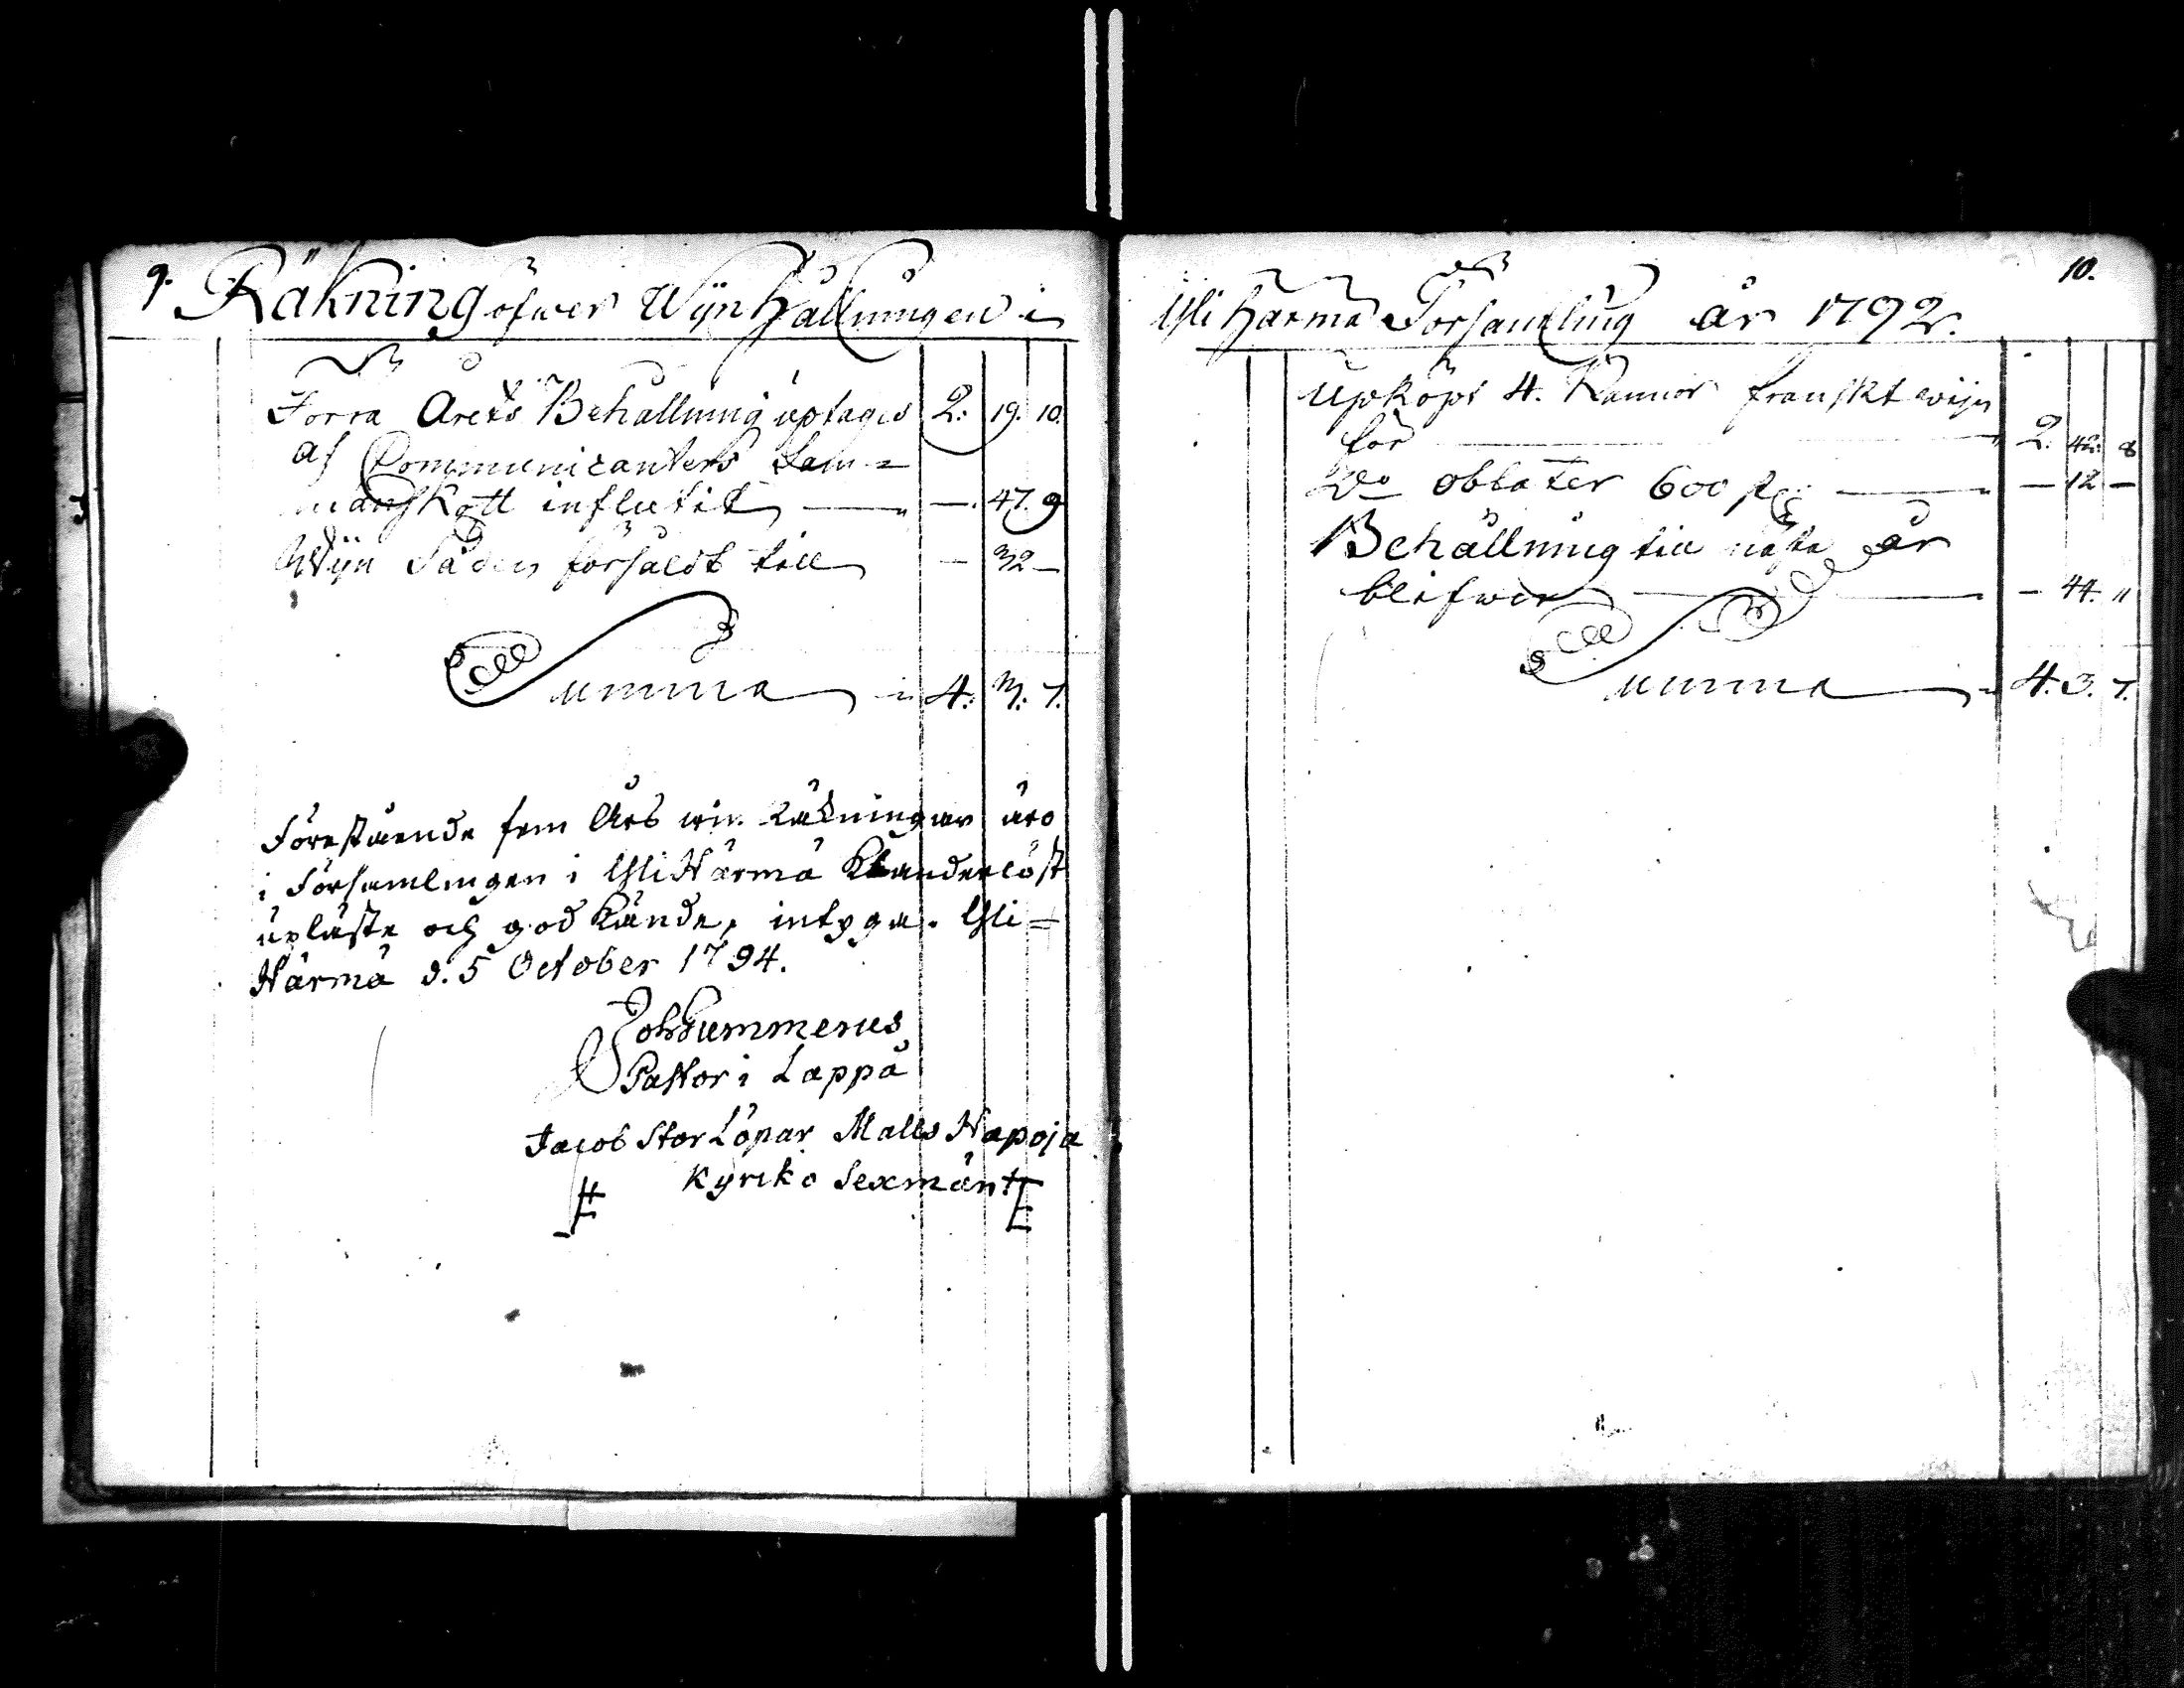 9. Räkning öfwer Wijnhållningen i
Förra Årets Behållning uptages 2. 19. 10.
af Communicanters Sam=
manskått influtit — 47. 9
Wijn Såden försåldt till — 32 —
Summa 4. 3. 7.
Förestående fem Års win Räkningar äro
i Församlingen i Ylihärmä Klanderlöst
upläste och godkände, intyga. Yli=
Härmä d. 5 October 1794.
Joh Summerus
Pastor i Lappå
Jacob Stor Löpar Matts Hapoja
Kyrko Sexmän
10.
Ylihärmä Församling år 1792.
Upköpt 4. Kannor franskt wijn
för 2. 42. 8
Do oblater 600 st — 12 —
Behållning till nästa år
blifwer — 44. 11
Summa 4. 3. 7.